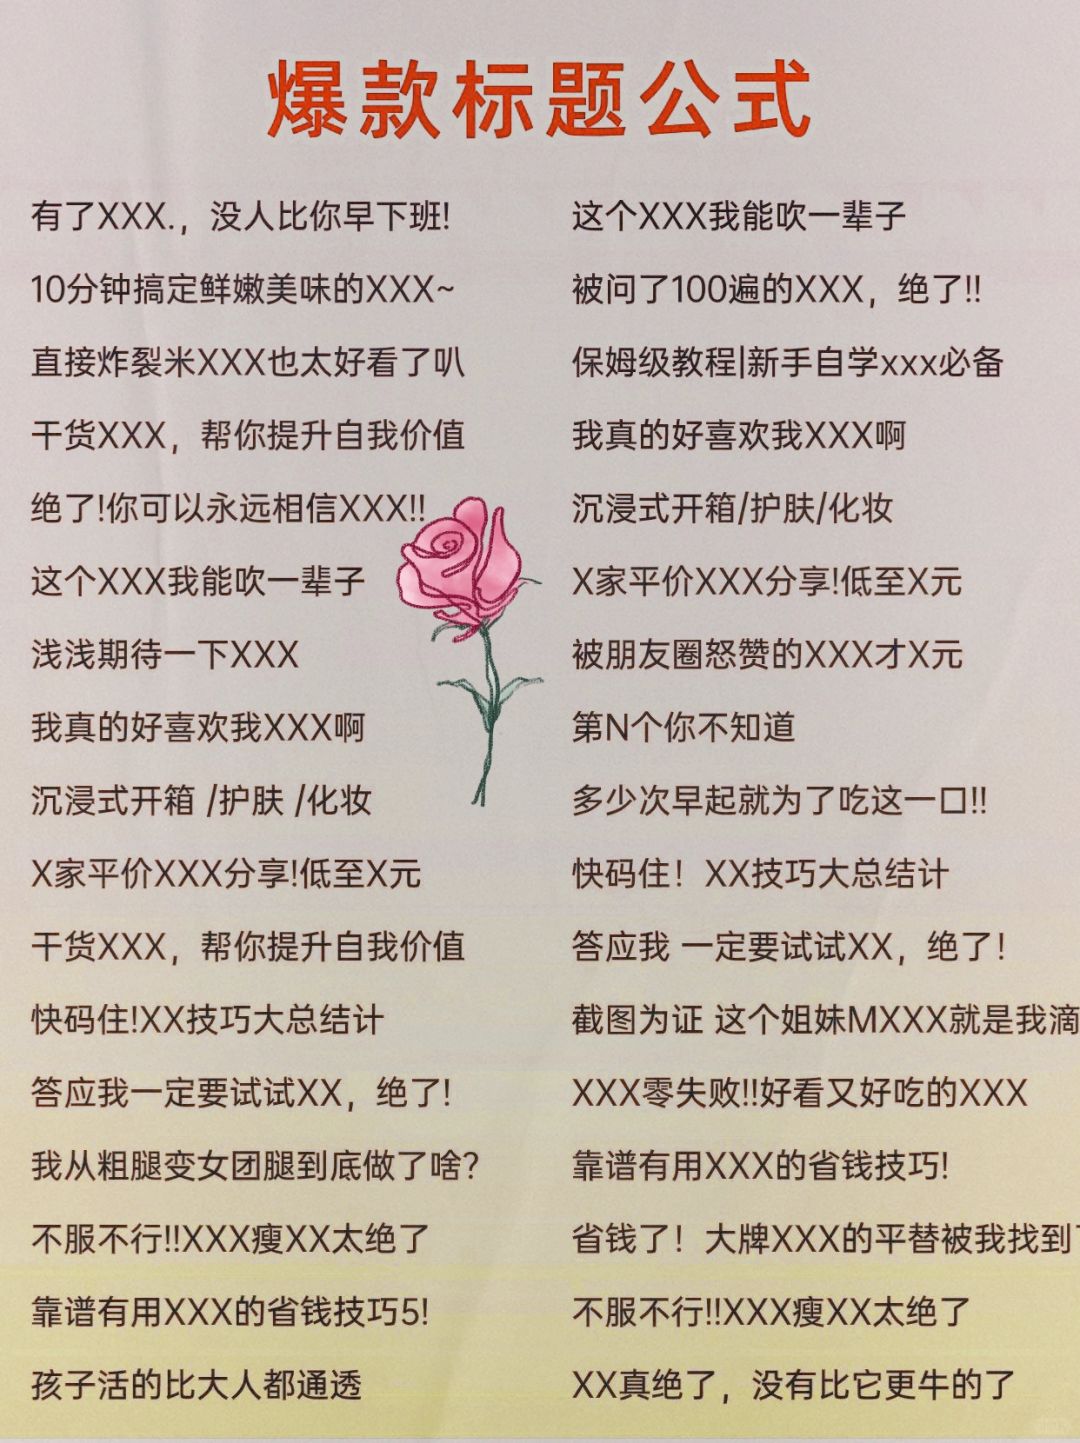 爆款标题公式
有了XXX.，没人比你早下班!
10分钟搞定鲜嫩美味的XXX~
直接炸裂米XXX也太好看了叭
干货XXX，帮你提升自我价值
绝了!你可以永远相信XXX!!
这个XXX我能吹一辈子
浅浅期待一下XXX
我真的好喜欢我XXX啊
沉浸式开箱 /护肤 /化妆
X家平价XXX分享!低至X元
干货XXX，帮你提升自我价值
快码住!XX技巧大总结计
答应我一定要试试XX，绝了!
我从粗腿变女团腿到底做了啥?
不服不行!!XXX瘦XX太绝了
靠谱有用XXX的省钱技巧5!
孩子活的比大人都通透
这个XXX我能吹一辈子
被问了100遍的XXX，绝了!!
保姆级教程|新手自学xxx必备
我真的好喜欢我XXX啊
沉浸式开箱/护肤/化妆
X家平价XXX分享!低至X元
被朋友圈怒赞的XXX才X元
第N个你不知道
多少次早起就为了吃这一口!!
快码住！XX技巧大总结计
答应我 一定要试试XX，绝了!
截图为证 这个姐妹MXXX就是我滴
XXX零失败!!好看又好吃的XXX
靠谱有用XXX的省钱技巧!
省钱了！大牌XXX的平替被我找到
不服不行!!XXX瘦XX太绝了
XX真绝了，没有比它更牛的了